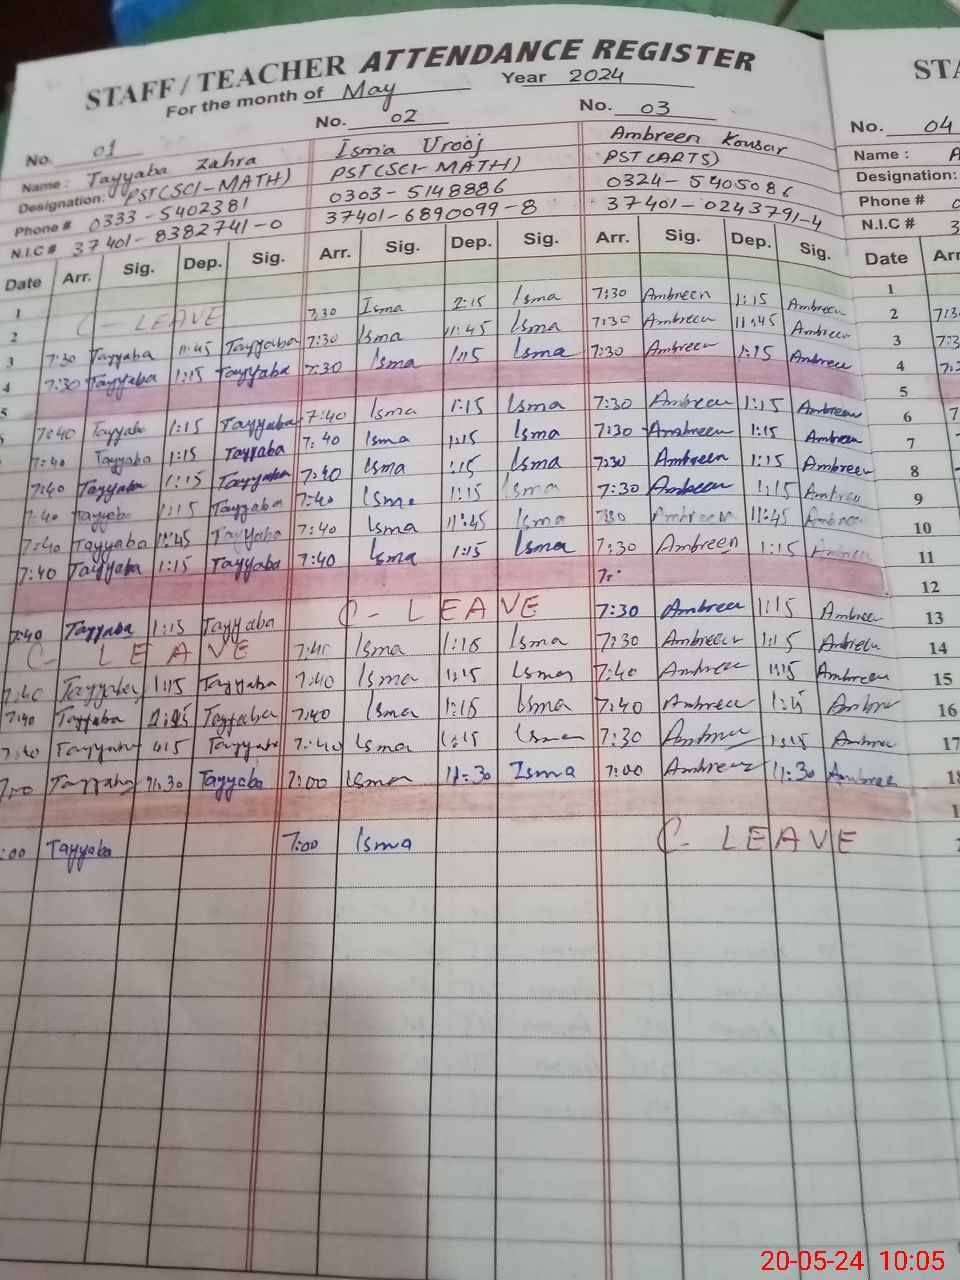 STAFF/TEACHER ATTENDANCE REGISTER
For the month of May Year 2024
No. 01 No. 02 No. 03
Name: Tayyaba Zahra Isma Urooj Ambreen Kousar
Designation: PST(SCI-MATH) PST(SCI-MATH) PST(ARTS)
Phone # 0333-5402381 0303-5148886 0324-5405086
N.I.C # 37401-8382741-0 37401-6890099-8 37401-0243791-4
Date Arr. Sig. Dep. Sig. Arr. Sig. Dep. Sig. Arr. Sig. Dep. Sig.
1
2 C-LEAVE 7:30 Isma 2:15 Isma 7:30 Ambreen 1:15 Ambreen
3 7:30 Tayyaba 11:45 Tayyaba 7:30 Isma 11:45 Isma 7:30 Ambreen 11:45 Ambreen
4 7:30 Tayyaba 1:15 Tayyaba 7:30 Isma 1:15 Isma 7:30 Ambreen 1:15 Ambreen
5
7:40 Tayyaba 1:15 Tayyaba 7:40 Isma 1:15 Isma 7:30 Ambreen 1:15 Ambreen
7:40 Tayyaba 1:15 Tayyaba 7:40 Isma 1:15 Isma 7:30 Ambreen 1:15 Ambreen
7:40 Tayyaba 1:15 Tayyaba 7:40 Isma 1:15 Isma 7:30 Ambreen 1:15 Ambreen
7:40 Tayyaba 1:15 Tayyaba 7:40 Isma 1:15 Isma 7:30 Ambreen 1:15 Ambreen
7:40 Tayyaba 11:45 Tayyaba 7:40 Isma 11:45 Isma 730 Ambreen 11:45 Ambreen
7:40 Tayyaba 1:15 Tayyaba 7:40 Isma 1:15 Isma 7:30 Ambreen 1:15 Ambreen
7:40 Tayyaba 1:15 Tayyaba C-LEAVE 7:30 Ambreen 1:15 Ambreen
C-LEAVE 7:40 Isma 1:15 Isma 7:30 Ambreen 1:15 Ambreen
7:40 Tayyaba 1:15 Tayyaba 7:40 Isma 1:15 Isma 7:40 Ambreen 1:15 Ambreen
7:40 Tayyaba Tayyaba 7:40 Isma 1:15 Isma 7:40 Ambreen 1:15
7:40 Tayyaba Tayyaba 7:40 Isma 1:15 Isma 7:30 1:15
7:00 Tayyaba 11:30 Tayyaba 7:00 Isma 11:30 Isma 7:00 Ambreen 11:30 Ambree
:00 Tayyaba 7:00 Isma C-LEAVE
STA
No. 04
Name: A
Designation:
Phone # 0
N.I.C # 3
Date Arr
1
2 7:3
3 7:3
4
5
6 7
7
8
9
10
11
12
13
14
15
16
17
20-05-24 10:05